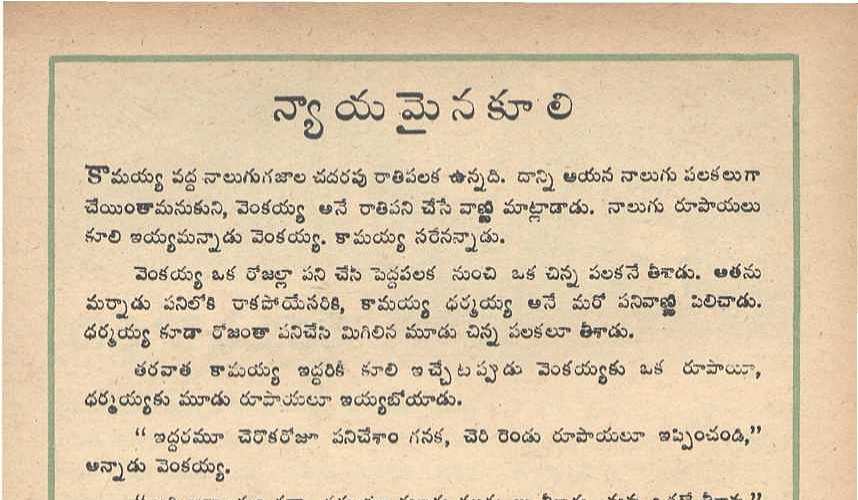 న్యాయమైన కూలి
కామయ్య వద్ద నాలుగుగజాల చదరవు రాతిపలక ఉన్నది. దాన్ని ఆయన నాలుగు పలకలుగా
చేయింతామనుకుని, వెంకయ్య అనే రాతిపని చేసే వాణ్ణి మాట్లాడాడు. నాలుగు రూపాయలు
కూలి ఇయ్యమన్నాడు వెంకయ్య. కామయ్య సరేనన్నాడు.
వెంకయ్య ఒక రోజల్లా పని చేసి పెద్దపలక నుంచి ఒక చిన్న పలకనే తీశాడు. అతను
మర్నాడు పనిలోకి రాకపోయేసరికి, కామయ్య ధర్మయ్య అనే మరో పనివాణ్ణి పిలిచాడు.
ధర్మయ్య కూడా రోజంతా పనిచేసి మిగిలిన మూడు చిన్న పలకలూ తీశాడు.
తరవాత కామయ్య ఇద్దరికీ కూలి ఇచ్చేటప్పుడు వెంకయ్యకు ఒక రూపాయీ,
ధర్మయ్యకు మూడు రూపాయలూ ఇయ్యబోయాడు.
“ ఇద్దరమూ చెరొకరోజూ పనిచేశాం గనక, చెరి రెండు రూపాయలూ ఇప్పించండి,”
అన్నాడు వెంకయ్య.